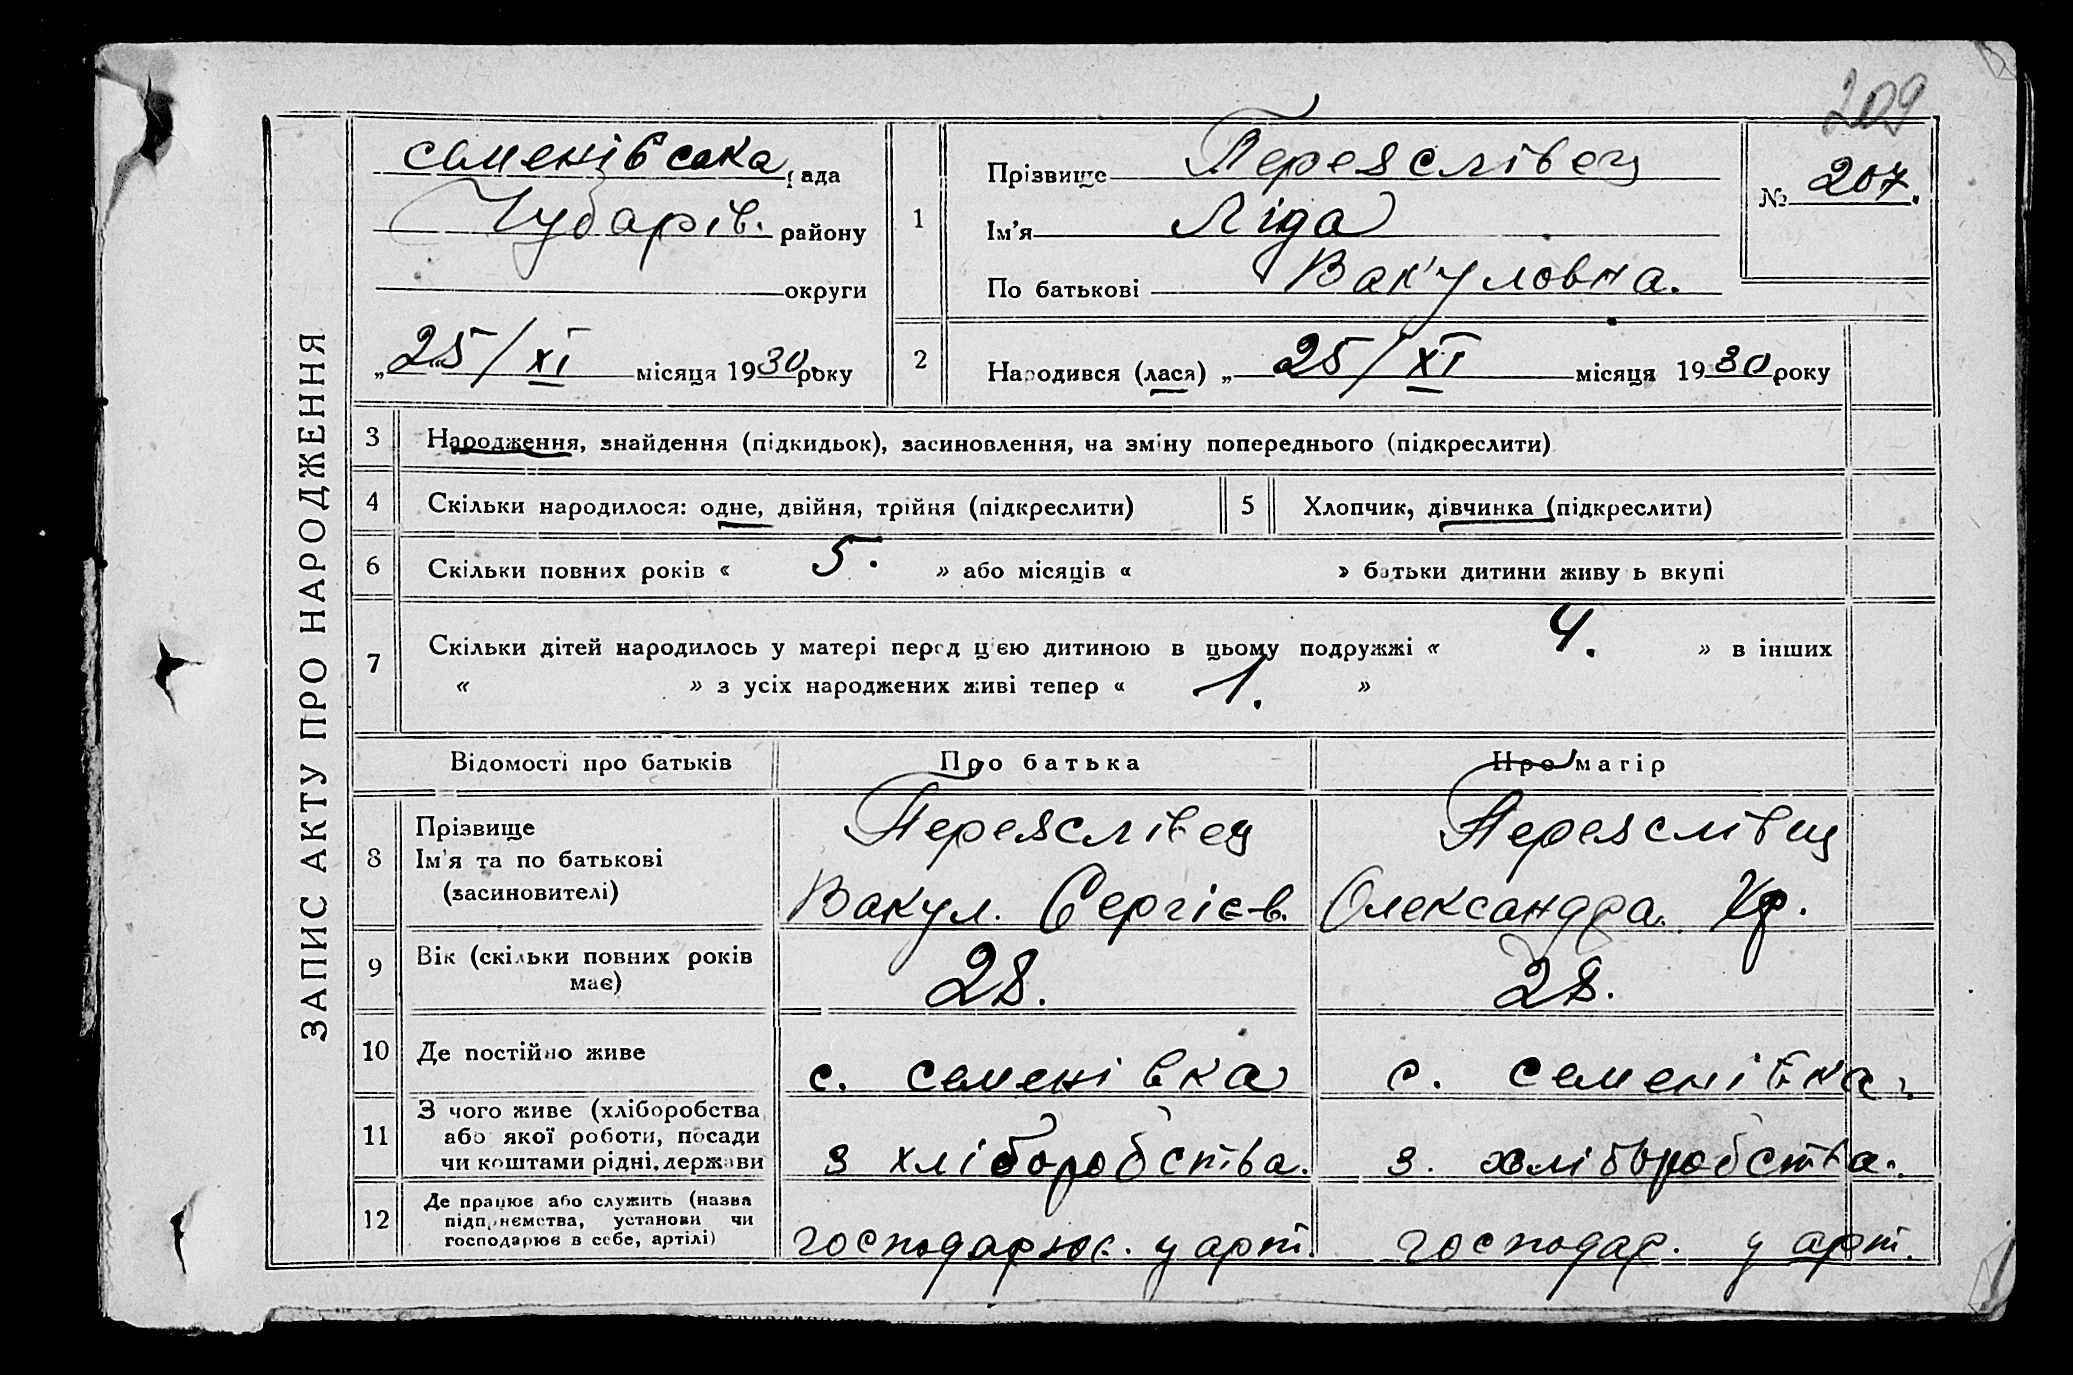 209
ЗАПИС АКТУ ПРО НАРОДЖЕННЯ
семенівська рада
Чубарів. району
округи
„25/XI місяця 1930 року
1
Прізвище Переяслівец
Ім'я Ліда
По батькові Вакуловна.
№ 207.
2
Народився (лася) „ 25/XI місяця 1930 року
3 Народження, знайдення (підкидьок), засиновлення, на зміну попереднього (підкреслити)
4 Скільки народилося: одне, двійня, трійня (підкреслити)
5 Хлопчик, дівчинка (підкреслити)
6 Скільки повних років « 5. » або місяців « » батьки дитини живуть вкупі
7 Скільки дітей народилось у матері перед цією дитиною в цьому подружжі « 4. » в інших
« » з усіх народжених живі тепер « 1. »
Відомості про батьків Про батька Про матір
8 Прізвище Переяслівец Переяслівец
Ім'я та по батькові Вакул. Сергієв. Олександра. Хр.
(засиновителі)
9 Вік (скільки повних років має) 28. 28.
10 Де постійно живе с. семенівка с. семенівка.
11 З чого живе (хліборобства
або якої роботи, посади
чи коштами рідні, держави з хліборобства. з. хліборобства.
12 Де працює або служить (назва
підприємства, установи чи
господарює в себе, артілі) господарює. у арт. господар. у арт.